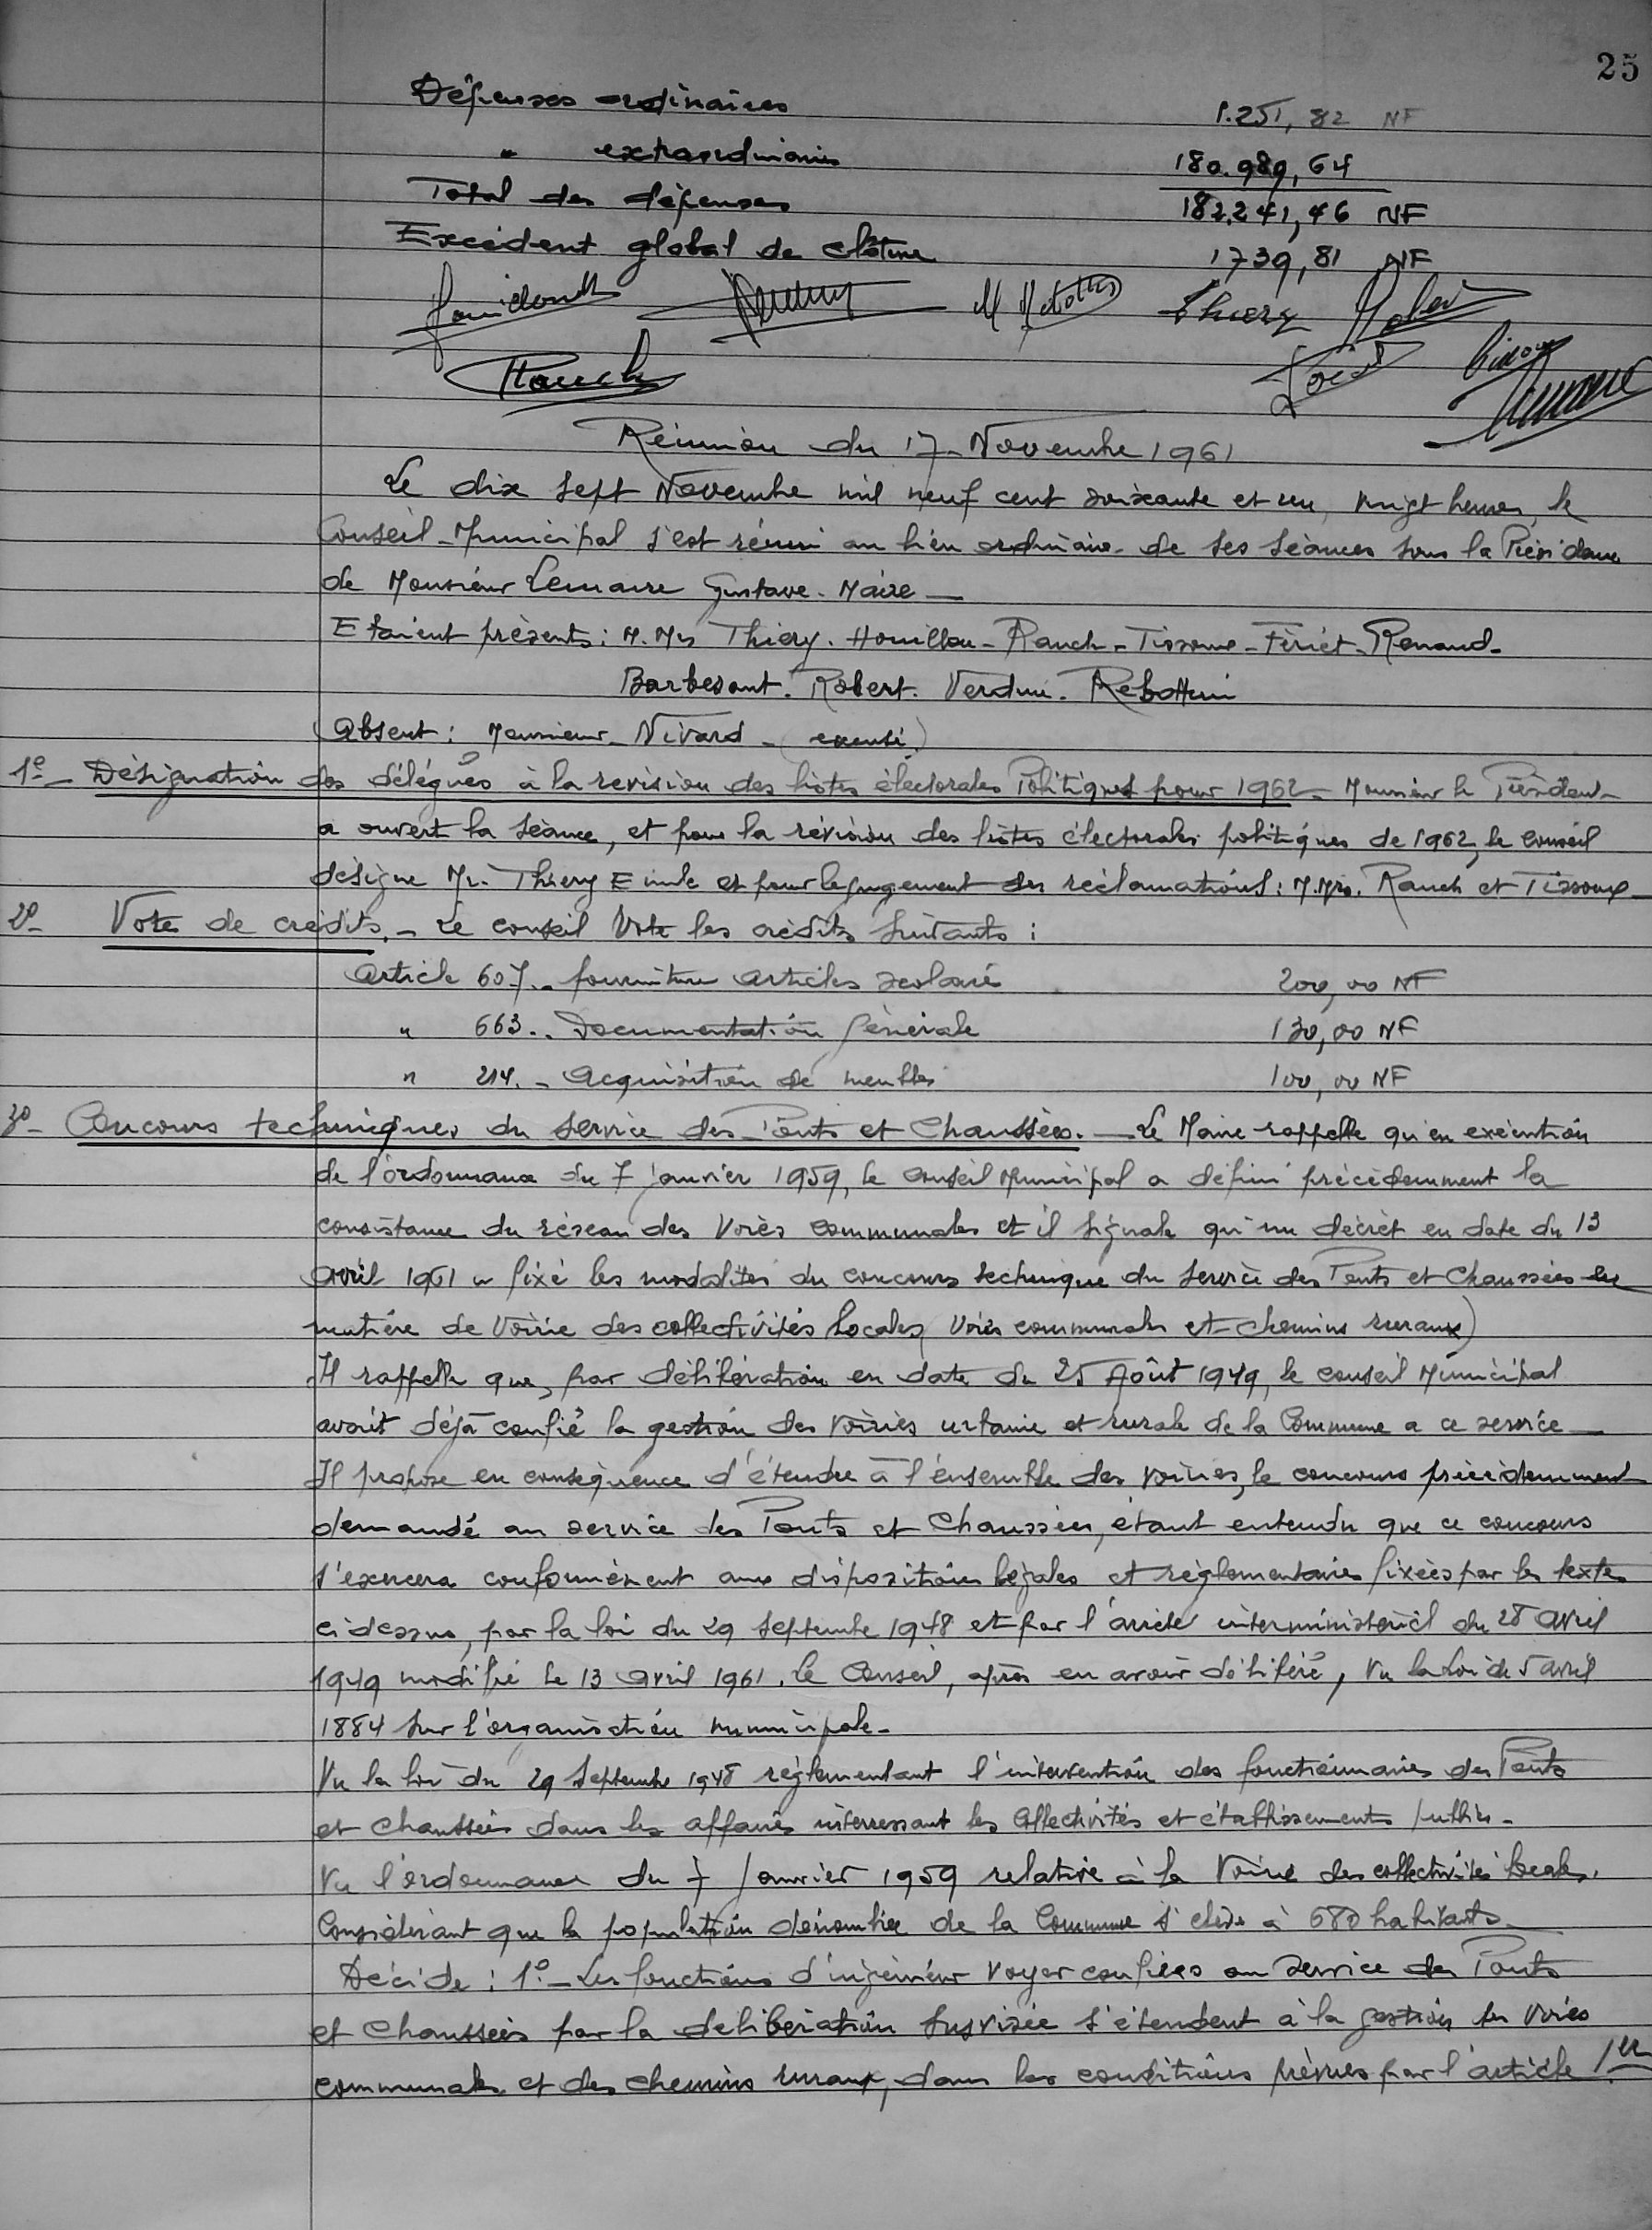 25
Dépenses ordinaires 1.251,82 NF
" extraordinaires 180.989,64
Total des dépenses 182.241,46 NF
Excédent global de clôture 1739,81 NF
Thiery Robert
Rauch Fériet Tissoux
Lemaire
Réunion du 17 Novembre 1961
Le dix sept Novembre mil neuf cent soixante et un, vingt heures, le
Conseil Municipal s'est réuni au lieu ordinaire de ses séances sous la Présidence
de Monsieur Lemaire Gustave. Maire
Etaient présents : M.Mrs Thiery. Houillon - Rauch - Tissoux - Fériet - Renaud -
Barbesant. Robert. Verduni. Rebottini
Absent : Monsieur Nivard - (excusé)
1º - Désignation des délégués à la revision des listes électorales Politiques pour 1962 - Monsieur le Président
a ouvert la séance, et pour la révision des listes électorales politiques de 1962, le conseil
désigne Mr. Thiery Emile et pour le jugement des réclamations : M.Mrs. Rauch et Tissoux -
2º - Vote de crédits. - Le conseil vote les crédits suivants :
Article 607. - fourniture articles scolaires 200,00 NF
" 663. - Documentation générale 130,00 NF
" 214. - Acquisition de meubles 100,00 NF
3º - Concours techniques du service des Ponts et Chaussées. - Le Maire rappelle qu'en exécution
de l'ordonnance du 7 janvier 1959, le Conseil Municipal a défini précédemment la
consistance du réseau des voies communales et il signale qu'un décrèt en date du 13
avril 1961 a fixé les modalités du concours technique du service des Ponts et Chaussées en
matière de voirie des collectivités locales (voies communales et chemins ruraux)
Il rappelle que, par délibération en date du 25 Août 1949, le conseil Municipal
avait déjà confié la gestion des voiries urbaine et rurale de la Commune a ce service
Il propose en conséquence d'étendre à l'ensemble des voiries, le concours précédemment
demandé au service des Ponts et Chaussées, étant entendu que ce concours
s'exercera conformément aux dispositions légales et réglementaires fixées par les textes
ci dessus, par la loi du 29 septembre 1948 et par l'arrêté interministériel du 28 avril
1949 modifié le 13 avril 1961. Le Conseil, après en avoir délibéré, Vu la Loi du 5 avril
1884 sur l'organisation municipale -
Vu la loi du 29 septembre 1948 réglementant l'intervention des fonctionnaires des Ponts
et Chaussées dans les affaires interressant les collectivités et établissements publics -
Vu l'ordonnance du 7 Janvier 1959 relative à la Voirie des collectivités locales.
Considérant que la population dénombrée de la Commune s'élève à 680 habitants
Décide : 1º - Les fonctions d'ingénieur voyer confiées au service des Ponts
et Chaussées par la délibération susvisée s'étendent à la gestion des voies
communales et des chemins ruraux, dans les conditions prévues par l'article 1er